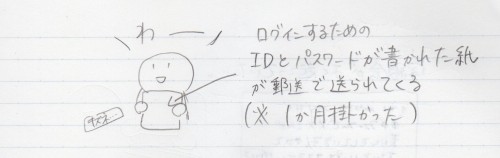 わーー
ログインするための
IDとパスワードが書かれた紙
が郵送で送られてくる
(※ 1か月掛かった)